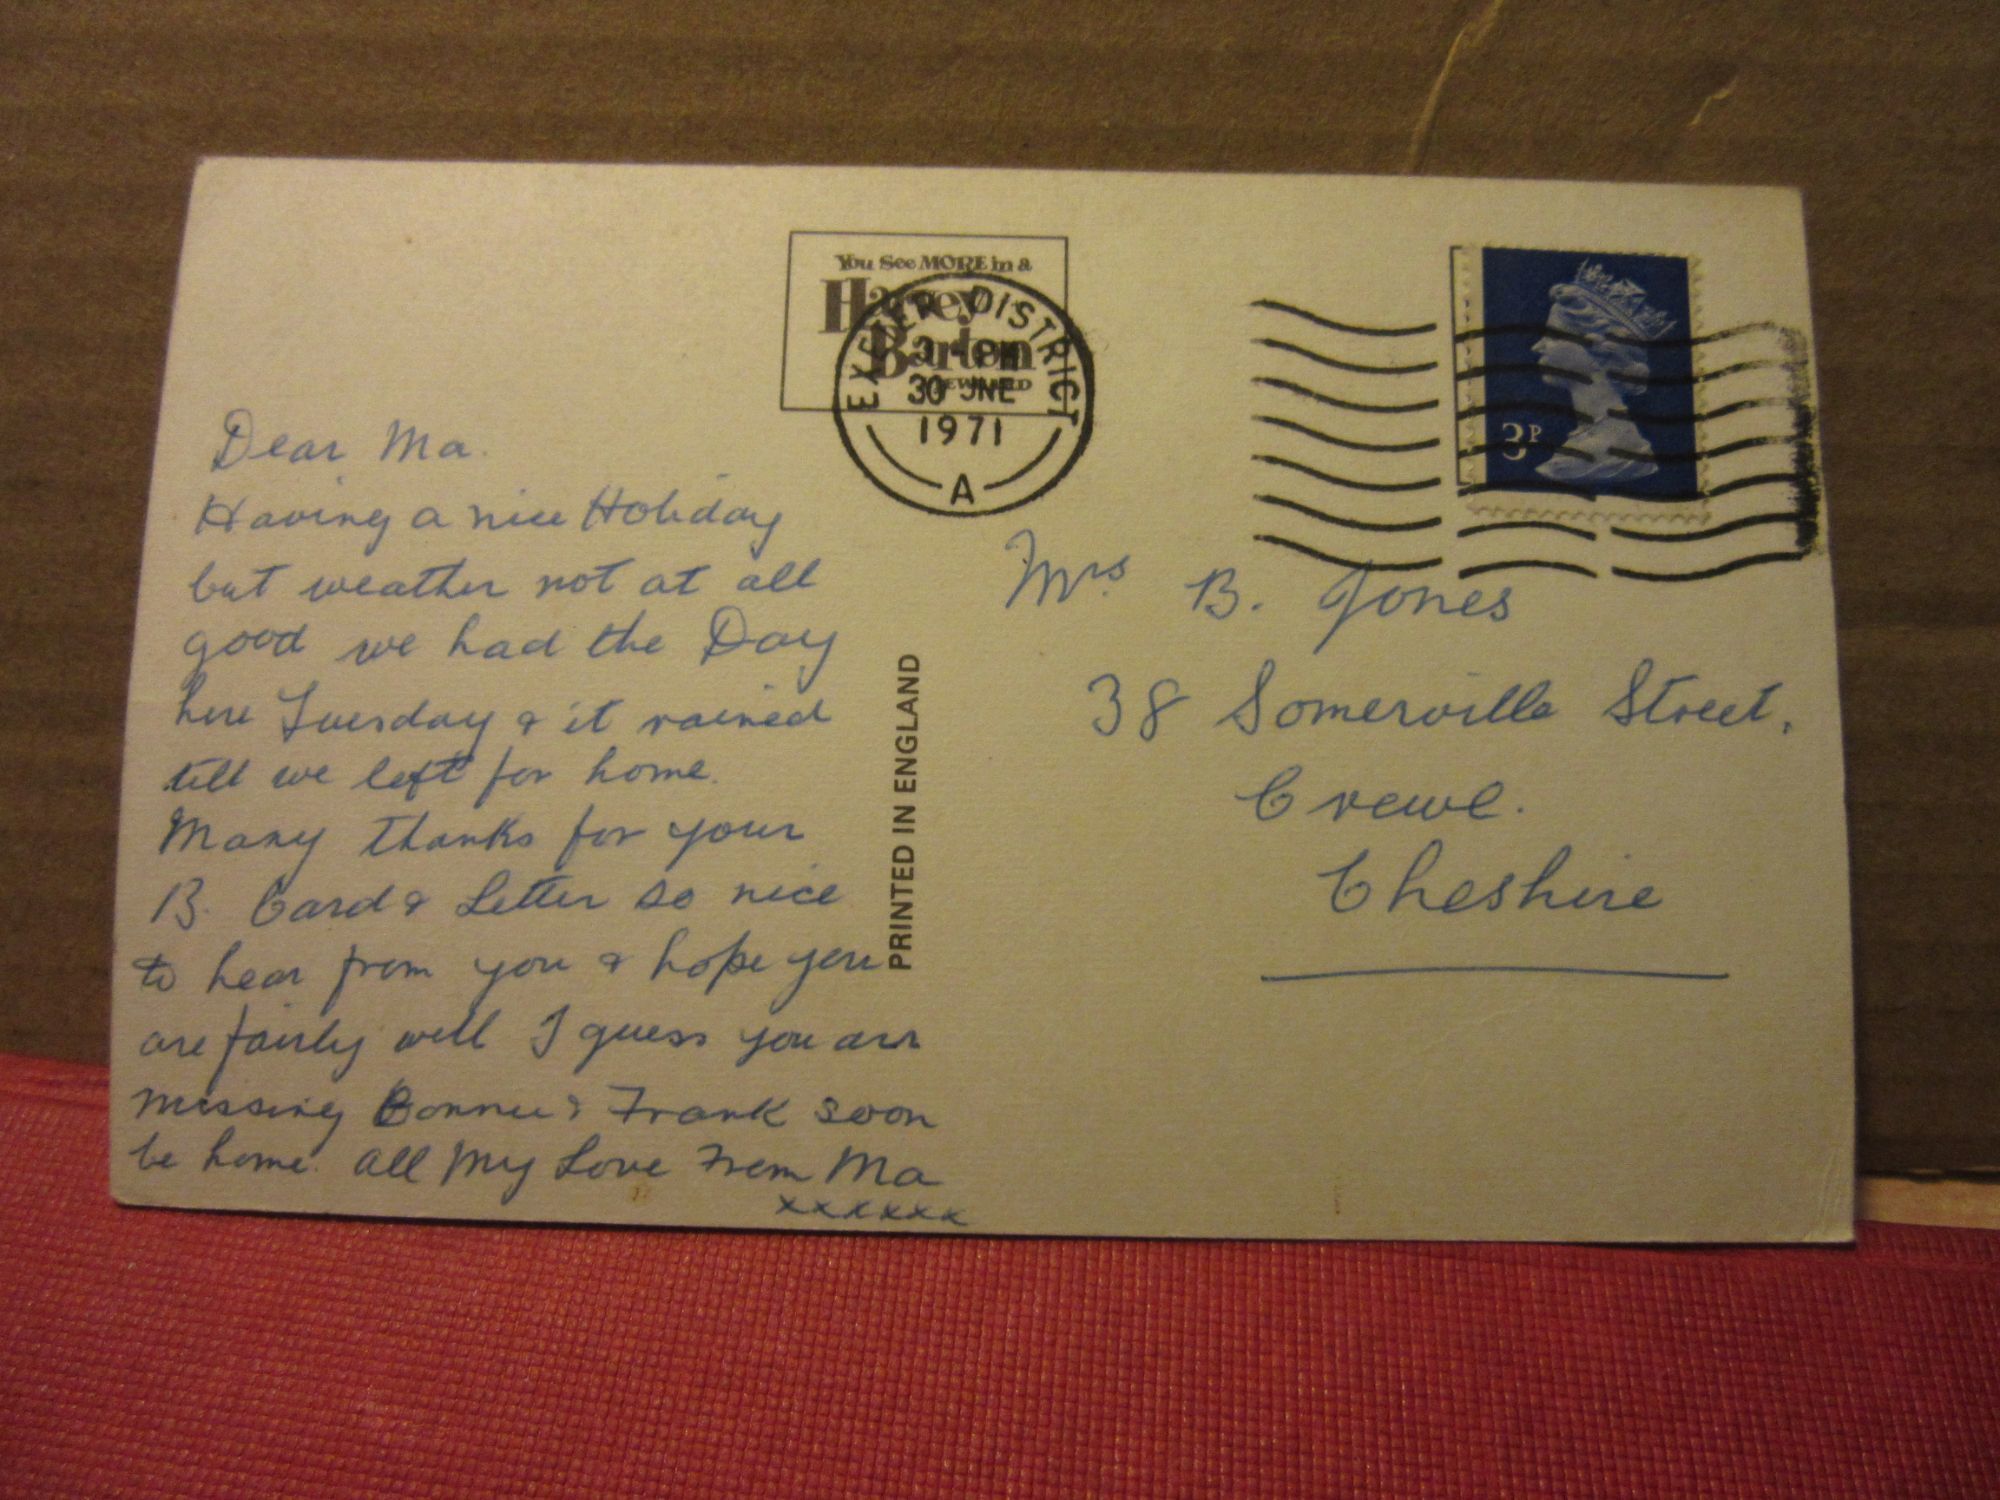 You See MORE in a
Harvey
Barton
EXETER DISTRICT
30 JNE
1971
A
3P
Dear Ma.
Having a nice Holiday
but weather not at all
good we had the Day
here Tuesday & it rained
till we left for home.
Many thanks for your
B. Card & Letter so nice
to hear from you & hope you
are fairly well I guess you are
missing Bonnie & Frank soon
be home. All My Love From Ma
xxxxxx
PRINTED IN ENGLAND
Mrs B. Jones
38 Somerville Street,
Crewe.
Cheshire